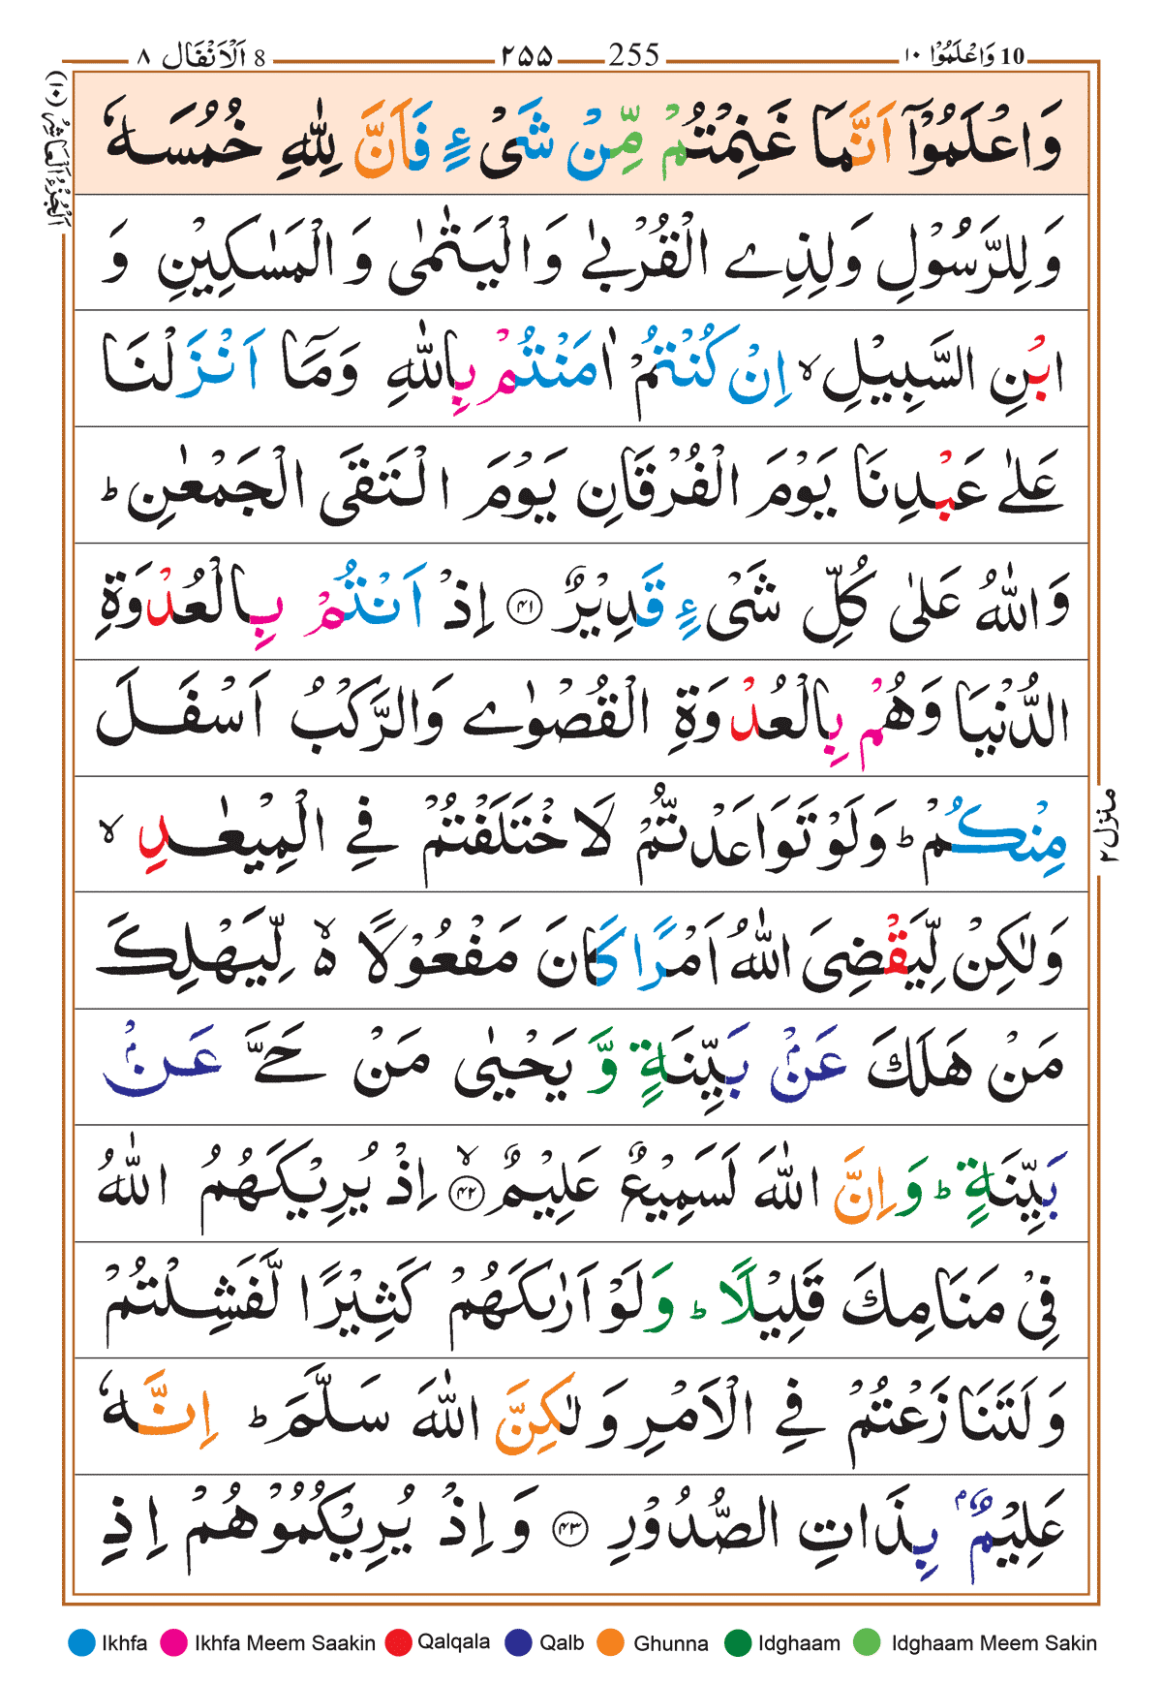 10 وَاعْلَمُوْا ١٠
255 ٢٥٥
8 اَلْاَنْفَال ٨
اَلْجُزْءُ الْعَاشِرُ (١٠)
وَاعْلَمُوْۤا اَنَّمَا غَنِمْتُمْ مِّنْ شَیْءٍ فَاَنَّ لِلّٰهِ خُمُسَهٗ
وَلِلرَّسُوْلِ وَلِذِے الْقُرْبٰے وَالْیَتٰمٰی وَالْمَسٰكِیْنِ وَ
ابْنِ السَّبِیْلِ ۙ اِنْ كُنْتُمْ اٰمَنْتُمْ بِاللّٰهِ وَمَاۤ اَنْزَلْنَا
عَلٰے عَبْدِنَا یَوْمَ الْفُرْقَانِ یَوْمَ الْتَقَی الْجَمْعٰنِ ؕ
وَاللّٰهُ عَلٰی كُلِّ شَیْءٍ قَدِیْرٌ ۝٤١ اِذْ اَنْتُمْ بِالْعُدْوَةِ
الدُّنْیَا وَهُمْ بِالْعُدْوَةِ الْقُصْوٰے وَالرَّكْبُ اَسْفَلَ
مِنْكُمْ ؕ وَلَوْ تَوَاعَدْتُّمْ لَاخْتَلَفْتُمْ فِے الْمِیْعٰدِ ۙ
وَلٰكِنْ لِّیَقْضِیَ اللّٰهُ اَمْرًا كَانَ مَفْعُوْلًا ۙ۬ لِّیَهْلِكَ
مَنْ هَلَكَ عَنْۢ بَیِّنَةٍ وَّ یَحْیٰی مَنْ حَیَّ عَنْۢ
بَیِّنَةٍ ؕ وَاِنَّ اللّٰهَ لَسَمِیْعٌ عَلِیْمٌ ۝٤٢ۙ اِذْ یُرِیْكَهُمُ اللّٰهُ
فِیْ مَنَامِكَ قَلِیْلًا ؕ وَلَوْ اَرٰىكَهُمْ كَثِیْرًا لَّفَشِلْتُمْ
وَلَتَنَازَعْتُمْ فِے الْاَمْرِ وَلٰكِنَّ اللّٰهَ سَلَّمَ ؕ اِنَّهٗ
عَلِیْمٌۢ بِذَاتِ الصُّدُوْرِ ۝٤٣ وَاِذْ یُرِیْكُمُوْهُمْ اِذِ
منزل ٢
Ikhfa Ikhfa Meem Saakin Qalqala Qalb Ghunna Idghaam Idghaam Meem Sakin